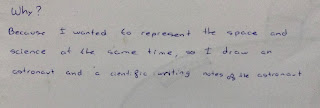 Why?
Because I wanted to represent the space and
science at the same time, so I draw an
astronaut and a cientific writing notes of the astronaut